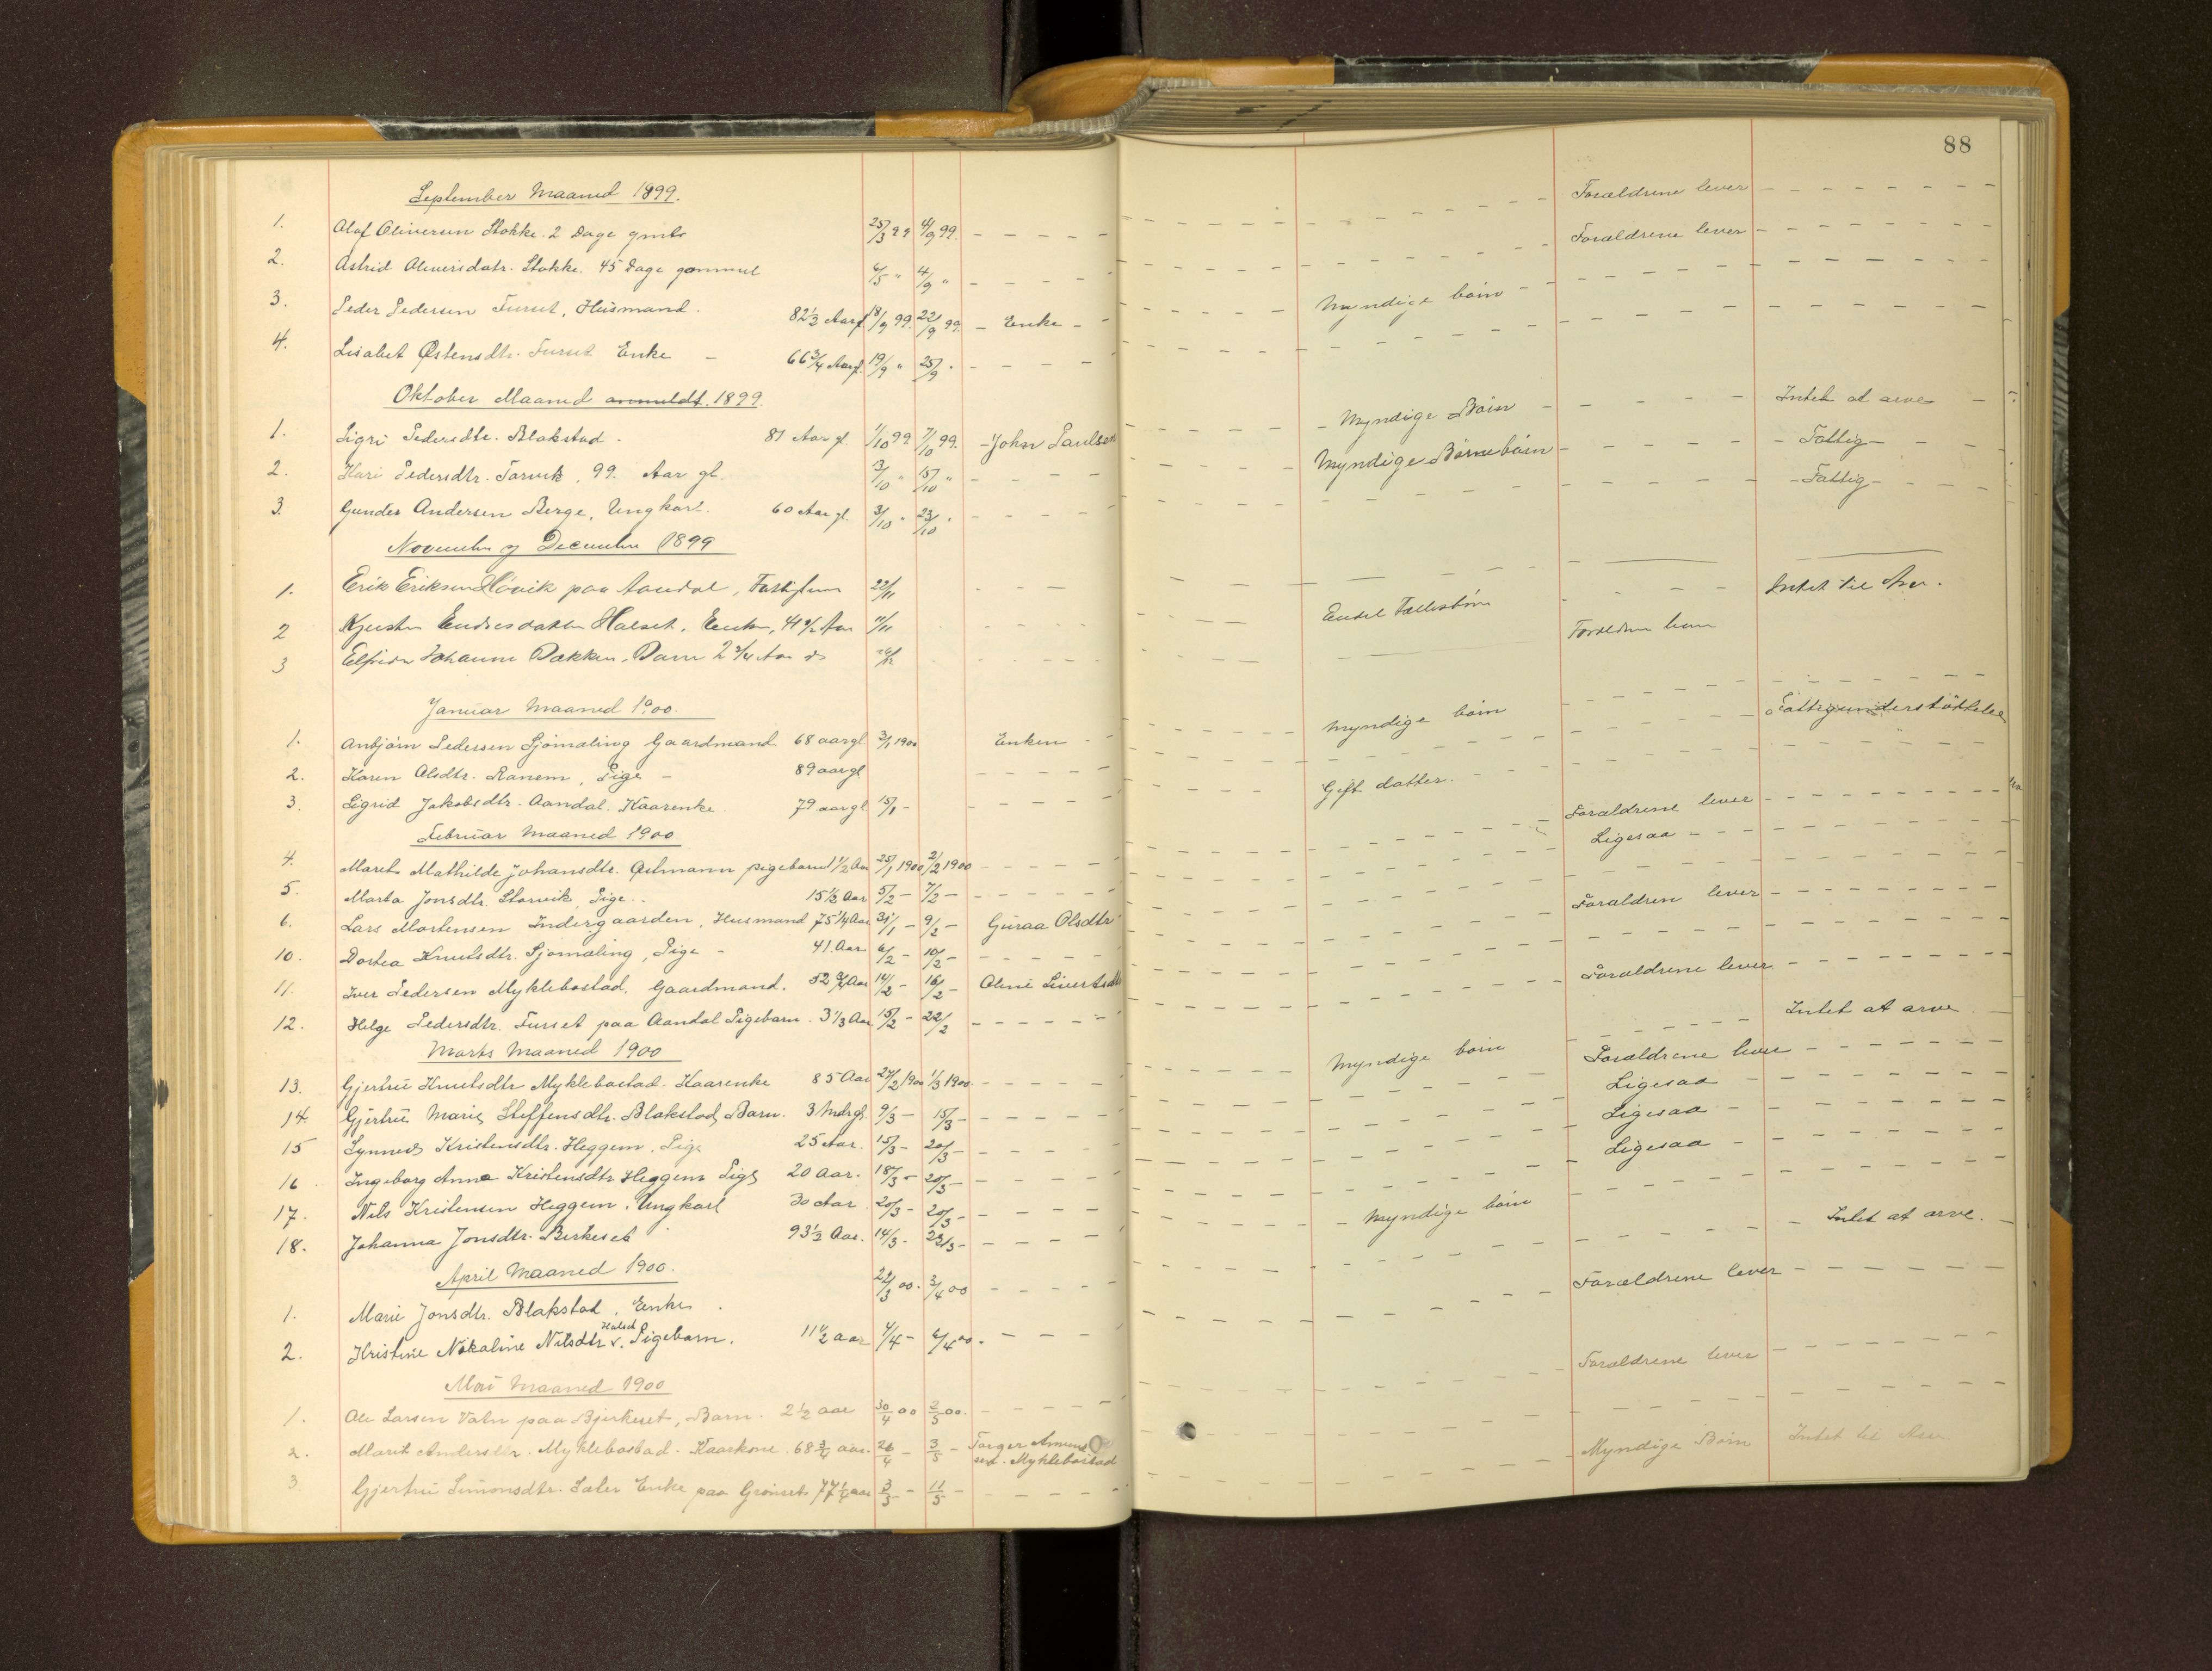 88
September Maaned 1899.
1. Olaf Oliversen Stokke. 2 Dage gmle 25/3 99 4/9 99. Forældrene lever
2. Astrid Oliversdatr. Stokke. 45 Dage gammel 6/5 " 4/9 " Forældrene lever
3. Peder Pedersen Furset, Husmand. 82 1/2 Aar gl 18/9 99. 22/9 99. - Enke - Myndige børn
4. Lisabet Østensdtr. Furset Enke - 66 3/4 Aar gl. 19/9 " 25/9 "
Oktober Maaned anmeldt. 1899.
1. Sigri Pedersdtr. Blakstad. 81 Aar gl. 1/10 99 7/10 99. - John Paulsen - Myndige Børn - Intet at arve
2. Kari Pedersdtr. Torvik, 99. Aar gl. 3/10 " 15/10 " Myndige Børnebørn - Fattig -
3. Gunder Andersen Berge, Ungkarl. 60 Aar gl. 3/10 " 23/10 " - Fattig -
November og December 1899
1. Erik Eriksen Høvik paa Aandal, 22/11 Intet til Arv.
2 Kjersten Endresdatter Halset, Enke, 41 1/2 Aar 11/11 Fællesbørn
3 Johanne Bakken, Barn 2 3/4 Aar Forældre
Januar Maaned 1900.
1. Anbjørn Pedersen Sjømæling Gaardmand 68 aar gl. 3/1 1900 Enken Myndige børn
2. Karen Olsdtr. Ranem, Pige - 89 aar gl Fattigunderstøttelse
3. Sigrid Jakobsdtr. Aandal. Kaarenke. 79 aar gl 15/1 - Gift datter.
Februar Maaned 1900
4. Maret Mathilde Johansdtr. Østmann pigebarn 1 1/2 Aar 25/1 1900 2/2 1900 Forældrene lever
5. Marta Jonsdtr. Storvik, Pige.. 15 1/2 Aar 5/2 - 7/2 - Ligesaa
6. Lars Mortensen Indergaarden, Husmand 75 1/4 Aar 31/1 - 9/2 - Guraa Olsdtr
10. Dortea Knutsdtr. Sjømæling, Pige - 41. Aar 6/2 - 10/2 - Forældren lever
11. Iver Pedersen Myklebostad. Gaardmand. 52 Aar 14/2 - 16/2 - Oline Sivertsdtr
12. Helge Pedersdtr. Furset paa Aandal Pigebarn. 3 1/3 Aar 15/2 - 22/2 Forældrene lever
Marts Maaned 1900
13. Gjertru Knutsdtr Myklebostad. Kaarenke 85 Aar 24/2 1900 1/3 1900 Myndige børn Intet at arve
14. Gjertru Marie Steffensdtr. Blakstad, Barn. 3 Mdr gl. 9/3 - 15/3 - Forældrene lever
15 Synneve Kristensdtr. Heggem, Pige 25 Aar. 15/3 - 20/3 - Ligesaa
16 Ingeborg Anna Kristensdtr. Heggem Pige 20 Aar. 18/3 - 20/3 - Ligesaa
17. Nils Kristensen Heggem, Ungkarl 30 Aar 20/3 - 20/3 - Ligesaa
18. Johanna Jonsdtr. Berkeset 93 1/2 Aar. 14/3 - 22/3 - Myndige børn
April Maaned 1900.
1. Marie Jonsdtr. Blakstad, Enke. 22/3 00. 3/4 00 Intet at arve.
2. Kristine Nikaline Nilsdtr v. Halset Pigebarn. 11 1/2 aar 4/4 - 6/4 00. Forældrene lever
Mai Maaned 1900
1. Ole Larsen Vatn paa Bjerkeset, Barn. 2 1/2 aar 30/4 00 2/5 00. Forældrene lever
2. Marit Andersdtr. Myklebostad. Kaarkone. 68 3/4 aar. 26/4 - 3/5 - Torger Amundsen. Myklebostad
3 Gjertru Simonsdtr. Sæter Enke paa Grønset 77 1/4 aar 3/5 - 11/5 - Myndige Børn Intet til Arv